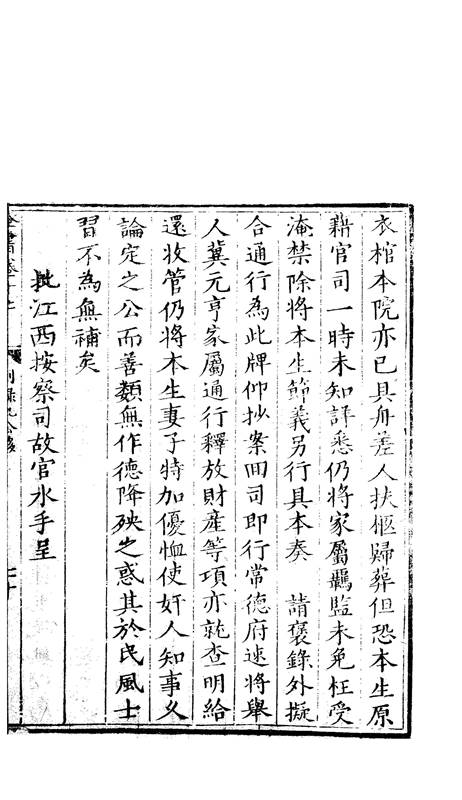 衣棺本院亦已具舟差人扶柩歸葬但恐本生原
籍官司一時未知詳悉仍將家屬羈監未免枉受
淹禁除將本生節義另行具本奏　請褒錄外擬
合通行為此牌仰抄案回司即行常德府速將舉
人冀元亨家屬通行釋放財產等項亦就查明給
還收管仍將本生妻子特加優恤使奸人知事久
論定之公而善類無作德降殃之惑其於民風士
習不為無補矣
批江西按察司故官水手呈